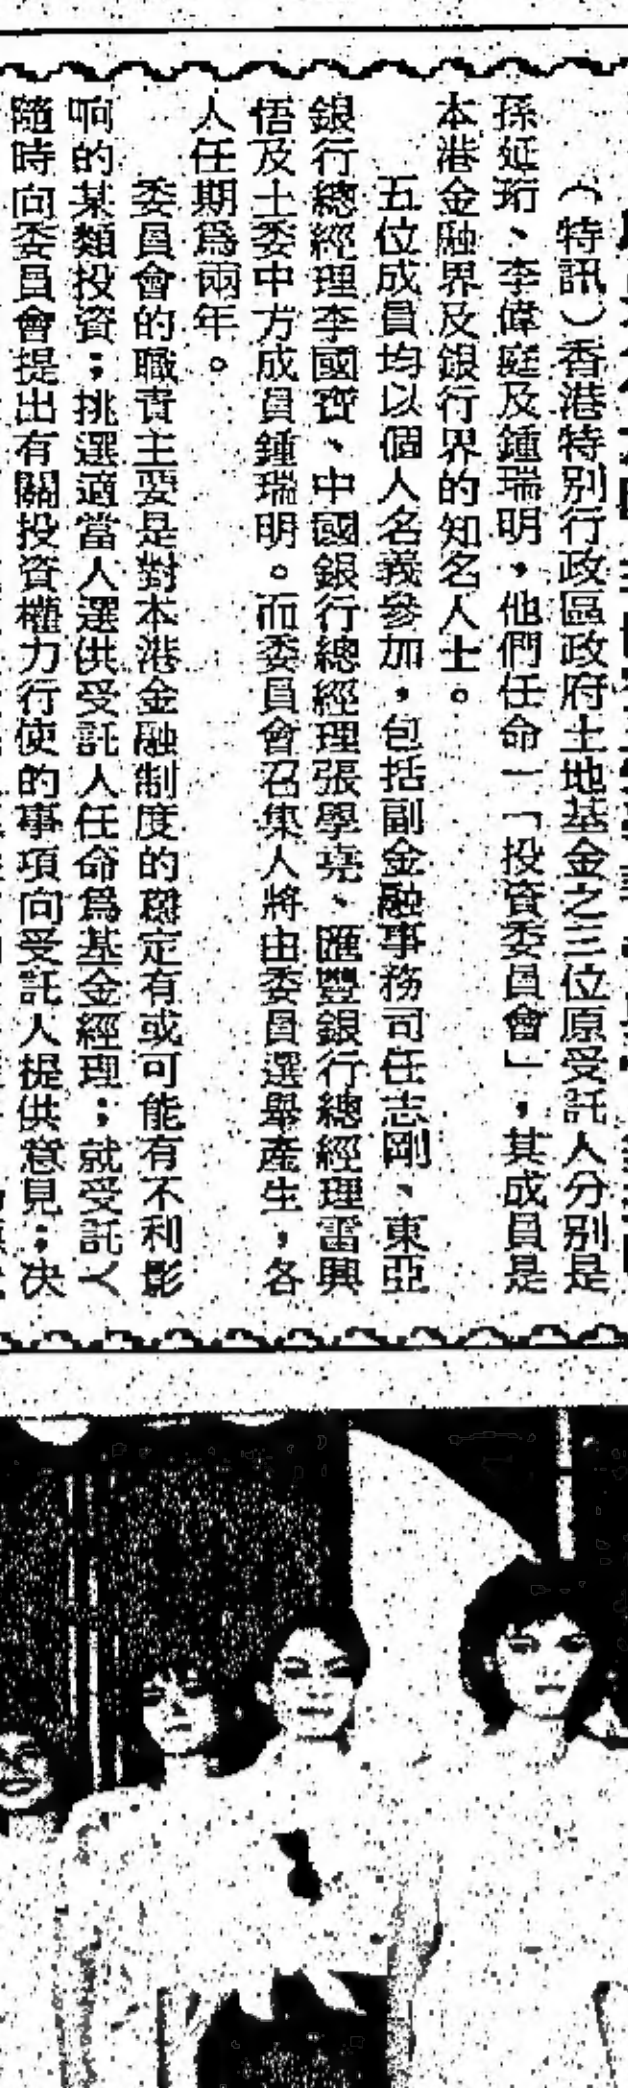 （特訊）香港特別行政區政府土地基金之三位原受託人分別是
孫延珩、李偉庭及鍾瑞明，他們任命一「投資委員會」，其成員是
本港金融界及銀行界的知名人士。
五位成員均以個人名義參加，包括副金融事務司任志剛、東亞
銀行總經理李國寶、中國銀行總經理張學堯、匯豐銀行總經理雷興
悟及土委中方成員鍾瑞明。而委員會召集人將由委員選舉產生，各
人任期爲兩年。
委員會的職責主要是對本港金融制度的穩定有或可能有不利影
响的某類投資；挑選適當人選供受託人任命爲基金經理；就受託人
隨時向委員會提出有關投資權力行使的事項向受託人提供意見；决